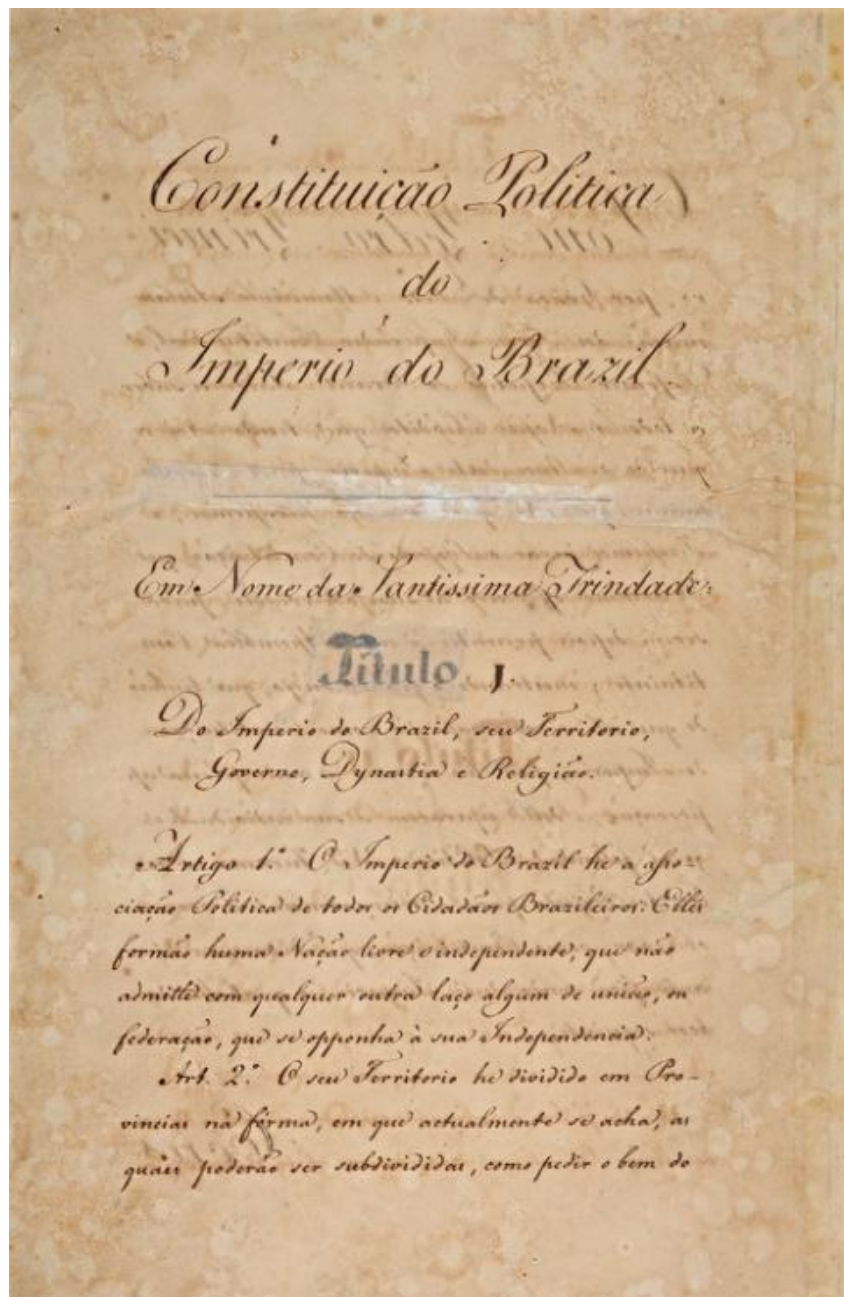 Constituição Politica
do
Imperio do Brazil.
Em Nome da Santissima Trindade.
Titulo 1.
Do Imperio do Brazil, seu Territorio,
Governo, Dynastia e Religião.
Artigo 1.º O Imperio do Brazil he a asso=
ciação Politica de todos os Cidadãos Brazileiros: Elles
formão huma Nação livre e independente, que não
admitte com qualquer outra laço algum de união, ou
federação, que se opponha à sua Independencia.
Art. 2.º O seu Territorio he dividido em Pro-
vincias na fórma, em que actualmente se acha, as
quáes poderão ser subdivididas, como pedir o bem do